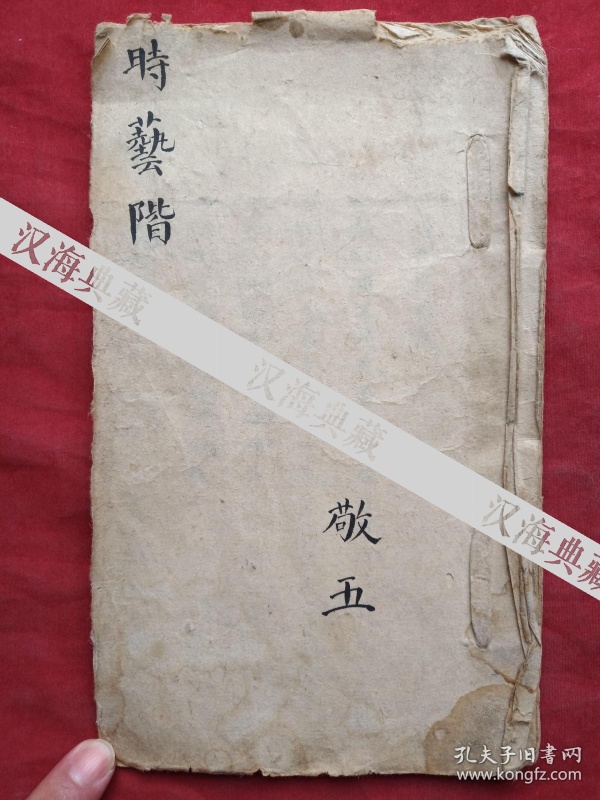 時藝階
敬五
汉海典藏
汉海典藏
汉海典藏
孔夫子旧书网
www.kongfz.com